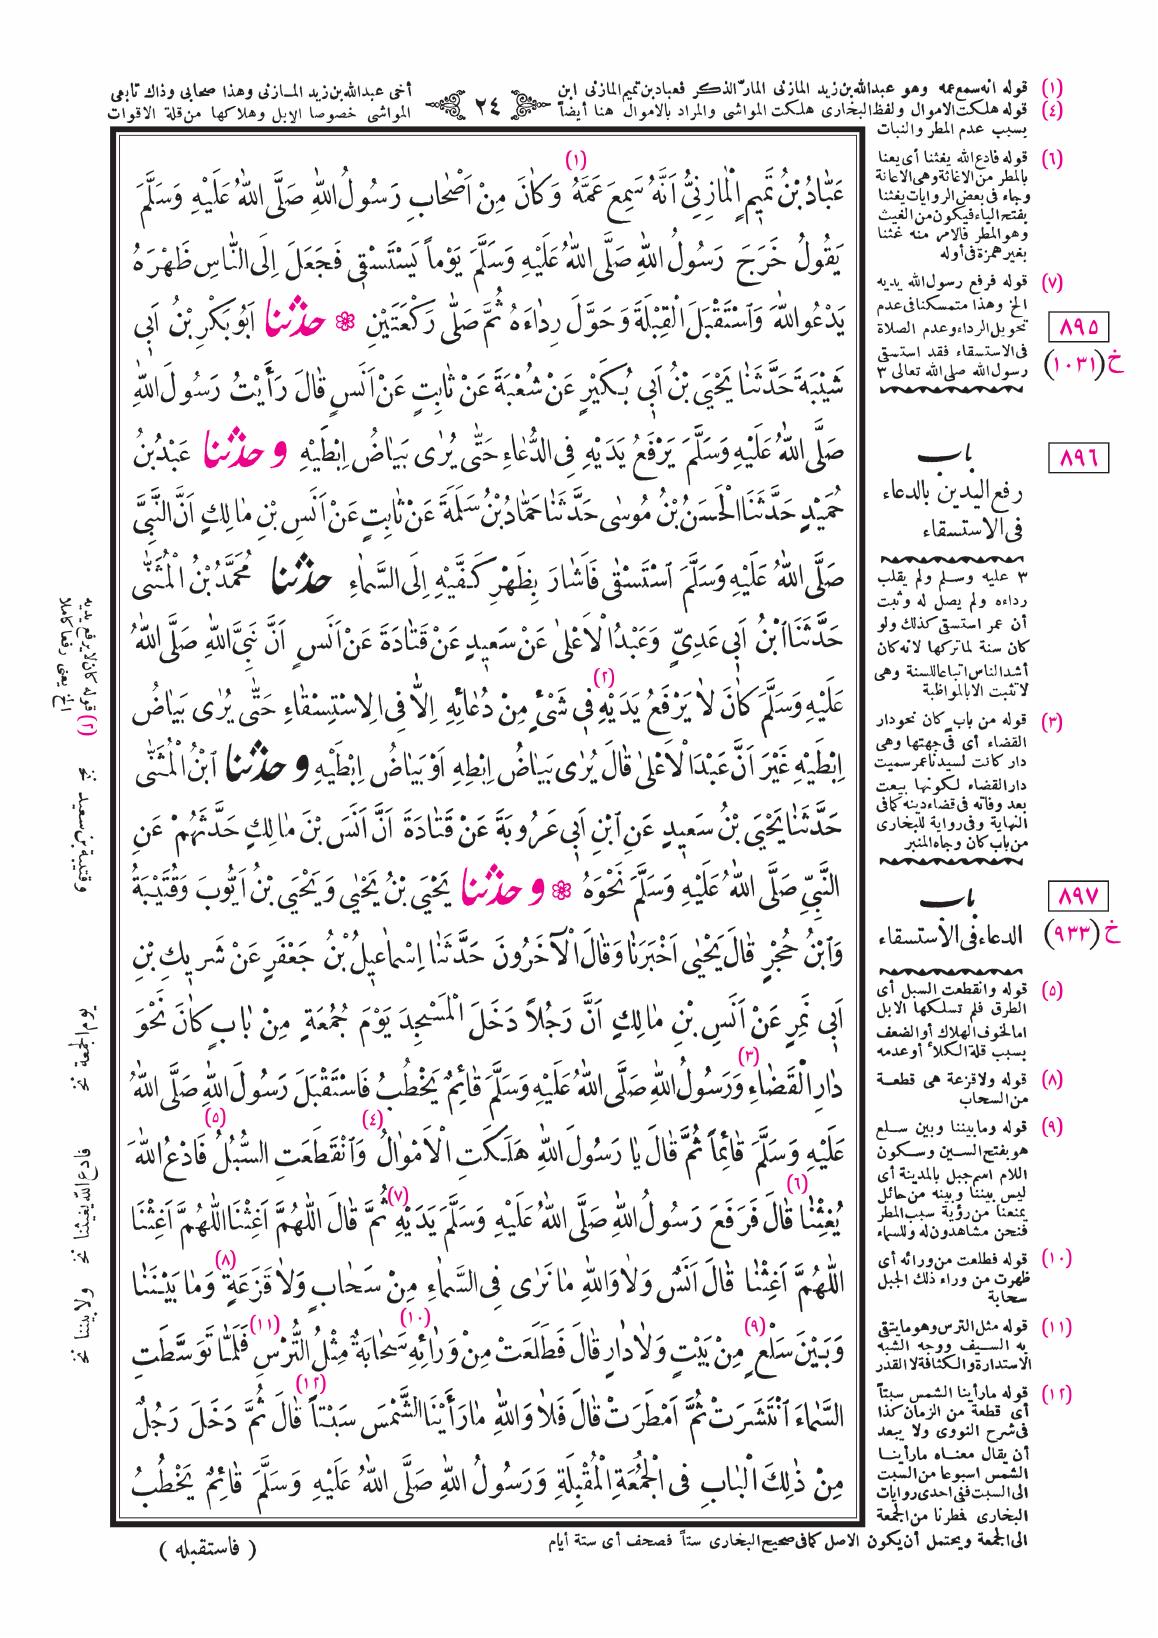 (١) قوله انه سمع عمه وهو عبدالله بن زيد المازنى المارّ الذكر فعباد بن تميم المازنى ابن
أخى عبدالله بن زيد المازنى وهذا صحابى وذاك تابعى
٢٤
(٤) قوله هلكت الاموال ولفظ البخارى هلكت المواشى والمراد بالاموال هنا أيضاً
المواشى خصوصا الإبل وهلاكها من قلة الاقوات
بسبب عدم المطر والنبات
(١)
عَبَّادُ بْنُ تَمِيمٍ الْمَازِنِيُّ اَنَّهُ سَمِعَ عَمَّهُ وَكَانَ مِنْ اَصْحَابِ رَسُولُ اللهِ صَلَّى اللهُ عَلَيْهِ وَسَلَّمَ
يَقُولُ خَرَجَ رَسُولُ اللهِ صَلَّى اللهُ عَلَيْهِ وَسَلَّمَ يَوْماً يَسْتَسْقِى فَجَعَلَ اِلَى النَّاسِ ظَهْرَهُ
يَدْعُو اللهَ وَاسْتَقْبَلَ الْقِبْلَةَ وَحَوَّلَ رِدَاءَهُ ثُمَّ صَلَّى رَكْعَتَيْنِ ❁ حدثنا اَبُو بَكْرِ بْنُ اَبِى
شَيْبَةَ حَدَّثَنَا يَحْيَى بْنُ اَبِى بُكَيْرٍ عَنْ شُعْبَةَ عَنْ ثَابِتٍ عَنْ اَنَسٍ قَالَ رَأَيْتُ رَسُولَ اللهِ
صَلَّى اللهُ عَلَيْهِ وَسَلَّمَ يَرْفَعُ يَدَيْهِ فِى الدُّعَاءِ حَتَّى يُرٰى بَيَاضُ اِبْطَيْهِ وحدثنا عَبْدُ بْنُ
حُمَيْدٍ حَدَّثَنَا الْحَسَنُ بْنُ مُوسٰى حَدَّثَنَا حَمَّادُ بْنُ سَلَمَةَ عَنْ ثَابِتٍ عَنْ اَنَسِ بْنِ مَالِكٍ اَنَّ النَّبِىَّ
صَلَّى اللهُ عَلَيْهِ وَسَلَّمَ اسْتَسْقٰى فَاَشَارَ بِظَهْرِ كَفَّيْهِ اِلَى السَّمَاءِ حدثنا مُحَمَّدُ بْنُ الْمُثَنّٰى
حَدَّثَنَا ابْنُ اَبِى عَدِيٍّ وَعَبْدُ الْاَعْلٰى عَنْ سَعِيدٍ عَنْ قَتَادَةَ عَنْ اَنَسٍ اَنَّ نَبِىَّ اللهِ صَلَّى اللهُ
(٢)
عَلَيْهِ وَسَلَّمَ كَانَ لَا يَرْفَعُ يَدَيْهِ فِى شَىْءٍ مِنْ دُعَائِهِ اِلَّا فِى الِاسْتِسْقَاءِ حَتَّى يُرٰى بَيَاضُ
اِبْطَيْهِ غَيْرَ اَنَّ عَبْدَ الْاَعْلٰى قَالَ يُرٰى بَيَاضُ اِبْطِهِ اَوْ بَيَاضُ اِبْطَيْهِ وحدثنا ابْنُ الْمُثَنّٰى
حَدَّثَنَا يَحْيَى بْنُ سَعِيدٍ عَنِ ابْنِ اَبِى عَرُوبَةَ عَنْ قَتَادَةَ اَنَّ اَنَسَ بْنَ مَالِكٍ حَدَّثَهُمْ عَنِ
النَّبِىِّ صَلَّى اللهُ عَلَيْهِ وَسَلَّمَ نَحْوَهُ ❁ وحدثنا يَحْيَى بْنُ يَحْيٰى وَيَحْيَى بْنُ اَيُّوبَ وَقُتَيْبَةُ
وَابْنُ حُجْرٍ قَالَ يَحْيٰى اَخْبَرَنَا وَقَالَ الْآخَرُونَ حَدَّثَنَا اِسْمَاعِيلُ بْنُ جَعْفَرٍ عَنْ شَرِيكِ بْنِ
اَبِى نَمِرٍ عَنْ اَنَسِ بْنِ مَالِكٍ اَنَّ رَجُلاً دَخَلَ الْمَسْجِدَ يَوْمَ جُمُعَةٍ مِنْ بَابٍ كَانَ نَحْوَ
(٣)
دَارِ الْقَضَاءِ وَرَسُولُ اللهِ صَلَّى اللهُ عَلَيْهِ وَسَلَّمَ قَائِمٌ يَخْطُبُ فَاسْتَقْبَلَ رَسُولَ اللهِ صَلَّى اللهُ
(٤) (٥)
عَلَيْهِ وَسَلَّمَ قَائِماً ثُمَّ قَالَ يَا رَسُولَ اللهِ هَلَكَتِ الْاَمْوَالُ وَانْقَطَعَتِ السُّبُلُ فَادْعُ اللهَ
(٦) (٧)
يُغِثْنَا قَالَ فَرَفَعَ رَسُولُ اللهِ صَلَّى اللهُ عَلَيْهِ وَسَلَّمَ يَدَيْهِ ثُمَّ قَالَ اللّٰهُمَّ اَغِثْنَا اللّٰهُمَّ اَغِثْنَا
(٨)
اللّٰهُمَّ اَغِثْنَا قَالَ اَنَسٌ وَلَا وَاللهِ مَا نَرٰى فِى السَّمَاءِ مِنْ سَحَابٍ وَلَا قَزَعَةٍ وَمَا بَيْنَنَا
(٩) (١٠) (١١)
وَبَيْنَ سَلْعٍ مِنْ بَيْتٍ وَلَا دَارٍ قَالَ فَطَلَعَتْ مِنْ وَرَائِهِ سَحَابَةٌ مِثْلُ التُّرْسِ فَلَمَّا تَوَسَّطَتِ
(١٢)
السَّمَاءَ انْتَشَرَتْ ثُمَّ اَمْطَرَتْ قَالَ فَلَا وَاللهِ مَا رَأَيْنَا الشَّمْسَ سَبْتاً قَالَ ثُمَّ دَخَلَ رَجُلٌ
مِنْ ذٰلِكَ الْبَابِ فِى الْجُمُعَةِ الْمُقْبِلَةِ وَرَسُولُ اللهِ صَلَّى اللهُ عَلَيْهِ وَسَلَّمَ قَائِمٌ يَخْطُبُ
(٦) قوله فادع الله يغثنا أى يعنا
بالمطر من الاغاثة وهى الاعانة
وجاء فى بعض الروايات يغثنا
بفتح الياء فيكون من الغيث
وهو المطر فالامر منه غثنا
بغير همزة فى أوله
(٧) قوله فرفع رسول الله يديه
الخ وهذا متمسكنا فى عدم
تحويل الرداء وعدم الصلاة
فى الاستسقاء فقد استسقى
رسول الله صلى الله تعالى ٣
٨٩٥
خ (١٠٣١)
باب
رفع اليدين بالدعاء
فى الاستسقاء
٨٩٦
٣ عليه وسلم ولم يقلب
رداءه ولم يصل له وثبت
أن عمر استسقى كذلك ولو
كان سنة لما تركها لانه كان
أشد الناس اتباعا للسنة وهى
لا تثبت الا بالمواظبة
(٣) قوله من باب كان نحو دار
القضاء أى فى جهتها وهى
دار كانت لسيدنا عمر سميت
دار القضاء لكونها بيعت
بعد وفاته فى قضاء دينه كما فى
النهاية وفى رواية للبخارى
من باب كان وجاه المنبر
باب
الدعاء فى الاستسقاء
٨٩٧
خ (٩٣٣)
(٥) قوله وانقطعت السبل أى
الطرق فلم تسلكها الابل
اما لخوف الهلاك أو الضعف
بسبب قلة الكلأ أو عدمه
(٨) قوله ولا قزعة هى قطعة
من السحاب
(٩) قوله وما بيننا وبين سلع
هو بفتح السين وسكون
اللام اسم جبل بالمدينة أى
ليس بيننا وبينه من حائل
يمنعنا من رؤية سبب المطر
فنحن مشاهدون له وللسماء
(١٠) قوله فطلعت من ورائه أى
ظهرت من وراء ذلك الجبل
سحابة
(١١) قوله مثل الترس وهو ما يتقى
به السيف ووجه الشبه
الاستدارة والكثافة لا القدر
(١٢) قوله ما رأينا الشمس سبتاً
أى قطعة من الزمان كذا
فى شرح النووى ولا يبعد
أن يقال معناه ما رأينا
الشمس اسبوعا من السبت
الى السبت ففى احدى روايات
البخارى فمطرنا من الجمعة
الى الجمعة ويحتمل أن يكون الاصل كما فى صحيح البخارى ستاً فصحف أى ستة أيام
( فاستقبله )
(٢) قوله كان لا يرفع يديه
الخ يعنى رفعا كاملا
وقتيبة بن سعيد نخ
يوم الجمعة نخ
فادع الله يغثنا نخ
ولا بيننا نخ